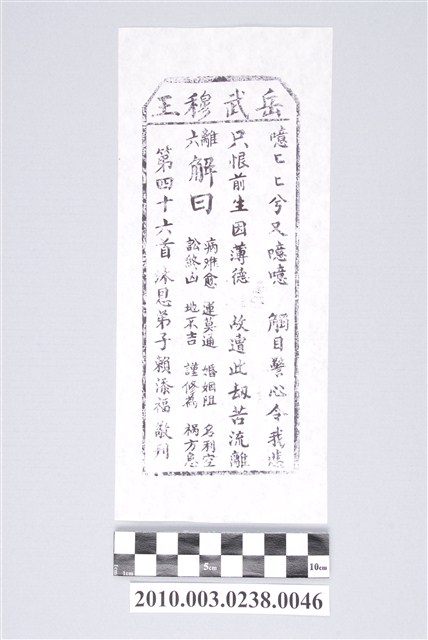 岳武穆王
噫匕匕兮又噫噫 觸目警心令我悲
只恨前生因薄德 故遺此劫苦流離
離六 解曰
病难愈 運莫通 婚姻阻 名利空
訟終凶 地不吉 謹修為 禍方息
第四十六首 沐恩弟子賴添福敬刊
1cm 5cm 10cm
2010.003.0238.0046